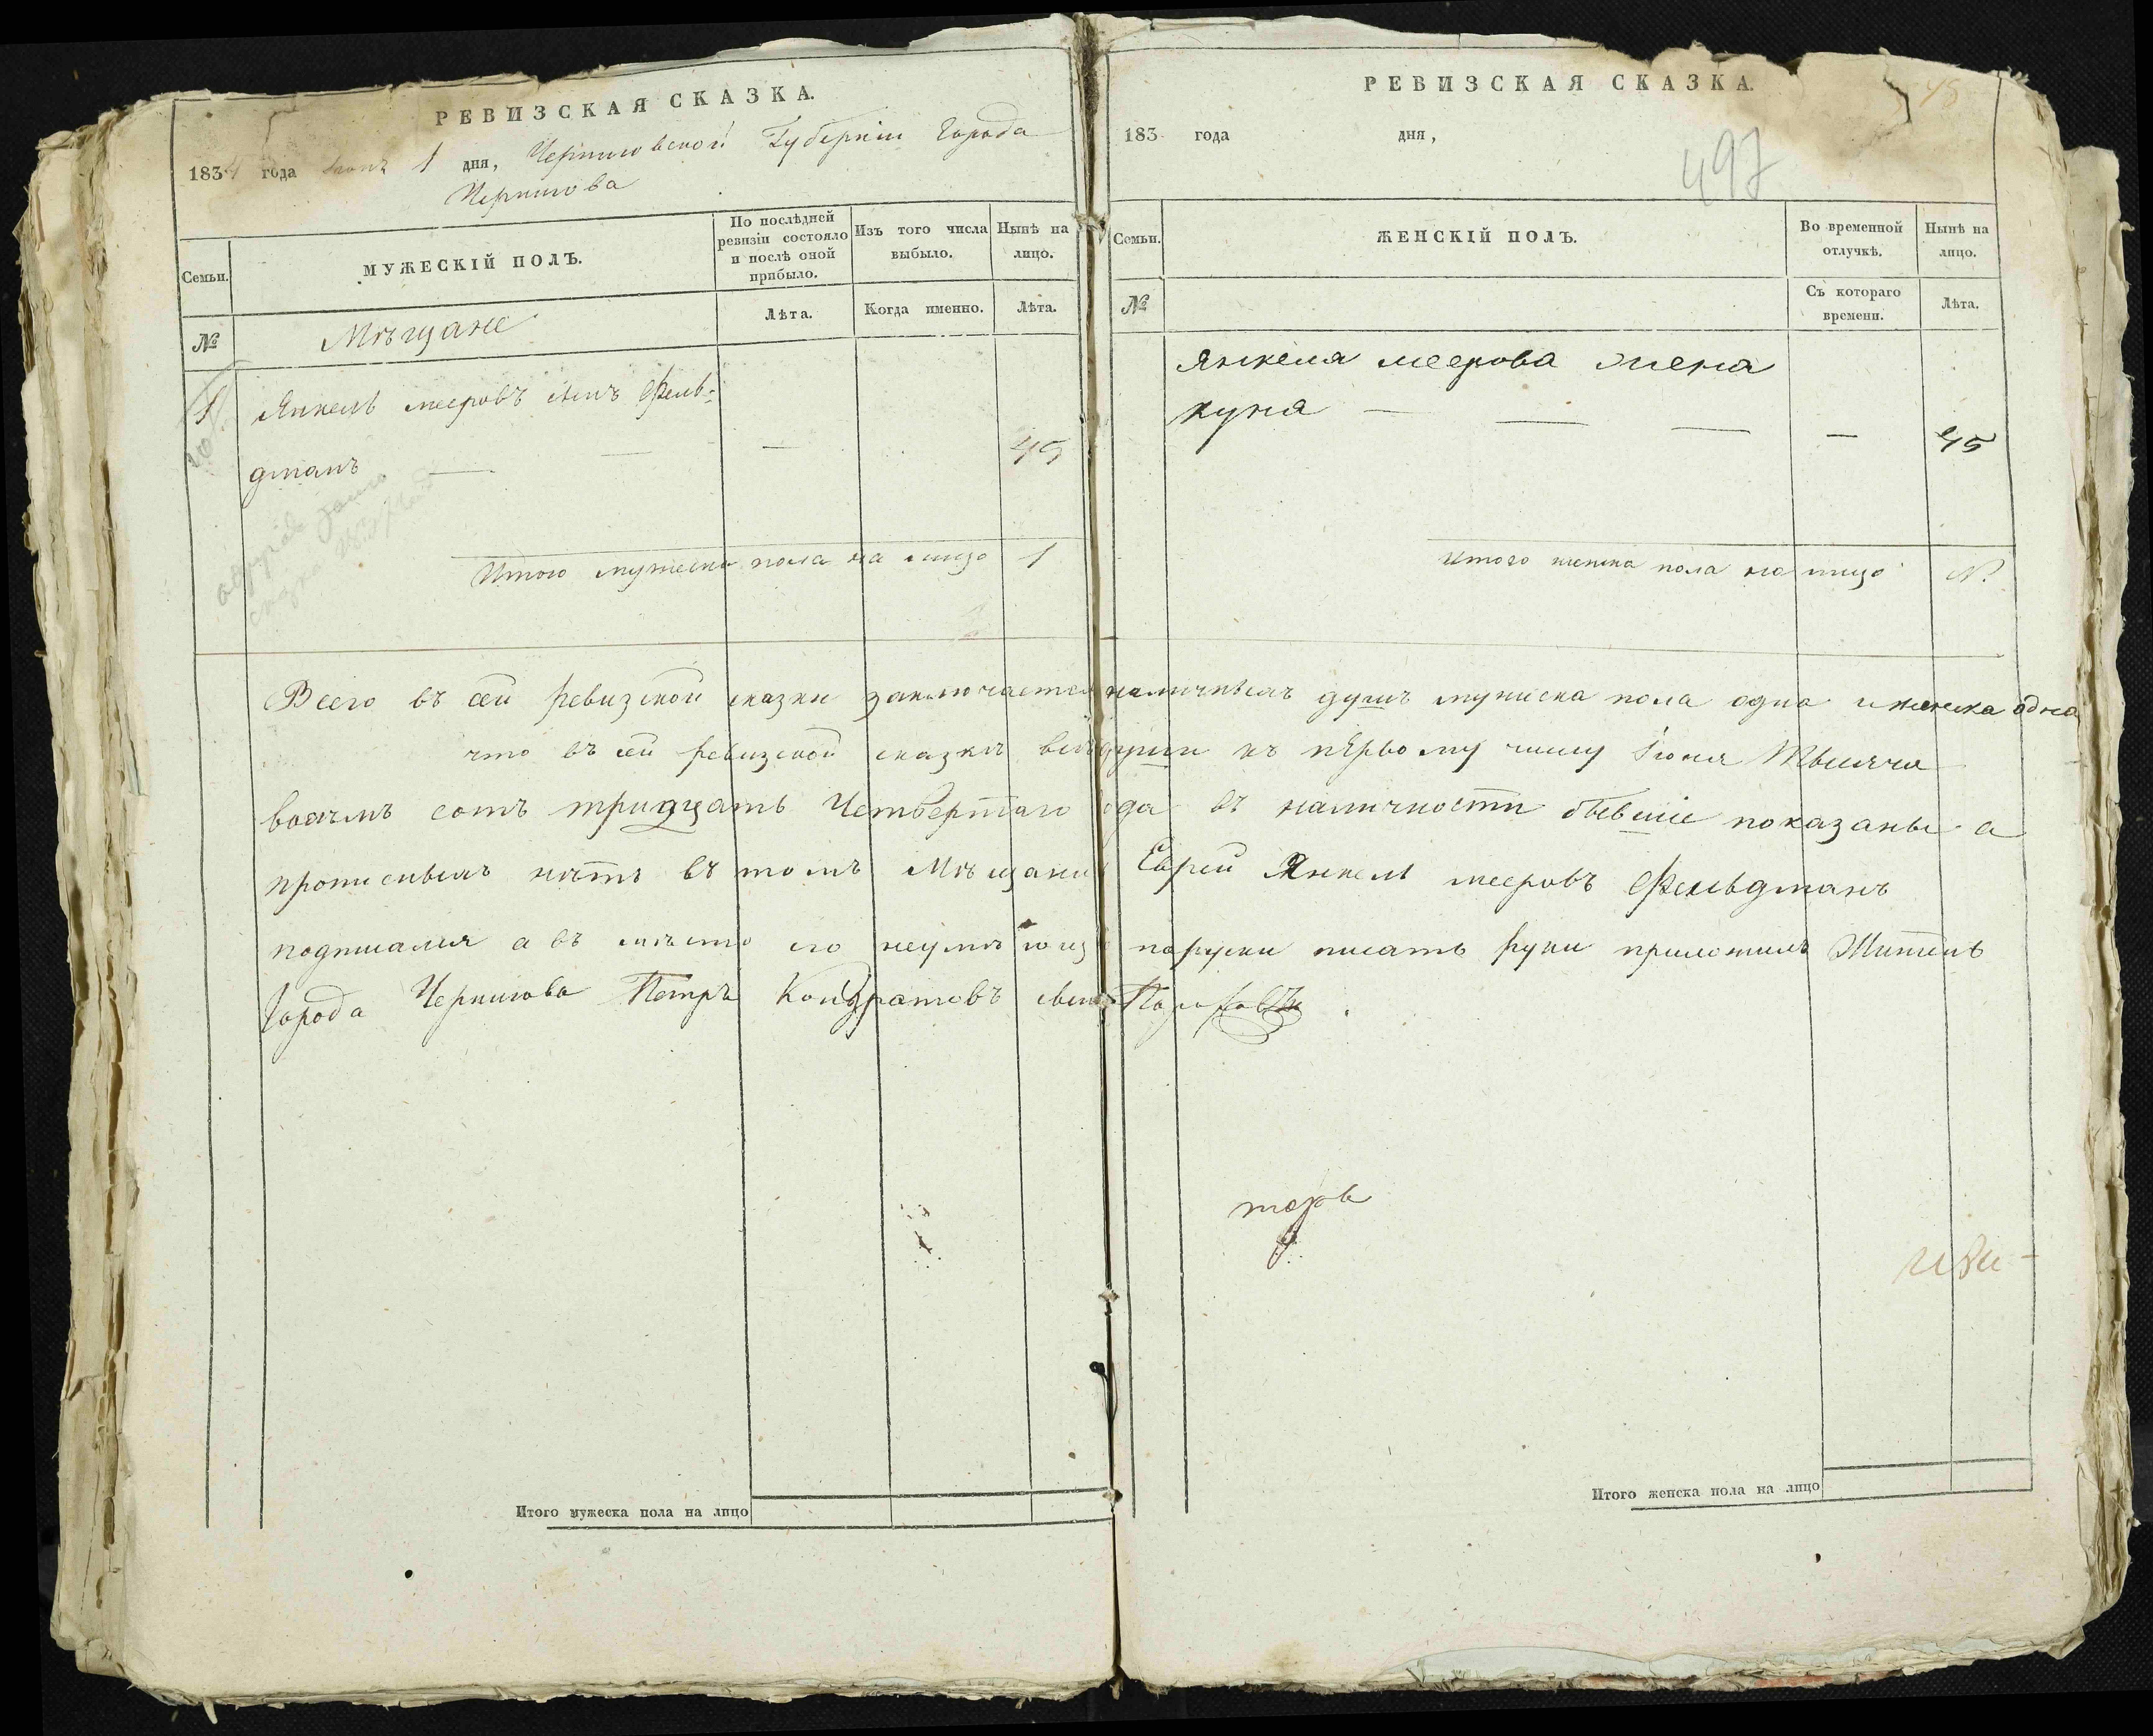 РЕВИЗСКАЯ СКАЗКА.
1834 года 1 дня, Черниговской Губерніи Города
Чернигова
Семьи.
МУЖЕСКІЙ ПОЛЪ.
По послѣдней ревизіи состояло и послѣ оной прибыло.
Изъ того числа выбыло.
Нынѣ на лицо.
№
Мѣщане
Лѣта.
Когда именно.
Лѣта.
1
Янкель мееровъ сынъ Фель-
дманъ — — — 45
Итого мужеска пола на лицо 1
РЕВИЗСКАЯ СКАЗКА.
183 года дня,
497
Семьи.
ЖЕНСКІЙ ПОЛЪ.
Во временной отлучкѣ.
Нынѣ на лицо.
№
Съ котораго времени.
Лѣта.
Янкеля меерова жена
— — — — 45
Итого женска пола на лицо
Всего въ сей ревизской сказки заключается наличныхъ душъ мужеска пола одна и женска одна
что въ сей ревизской сказкѣ всѣ души къ первому числу Іюня Тысяча
восемь сотъ тридцать Четвертаго года въ наличности бывшіе показаны а
прописныхъ нѣтъ въ томъ Мѣщанинъ Еврей Янкель мееровъ Фельдманъ
подписался а въ мѣсто его неумѣющ поруски писать руки приложилъ Житель
Города Чернигова Петръ Кондратовъ сынъ
Итого мужеска пола на лицо
Итого женска пола на лицо